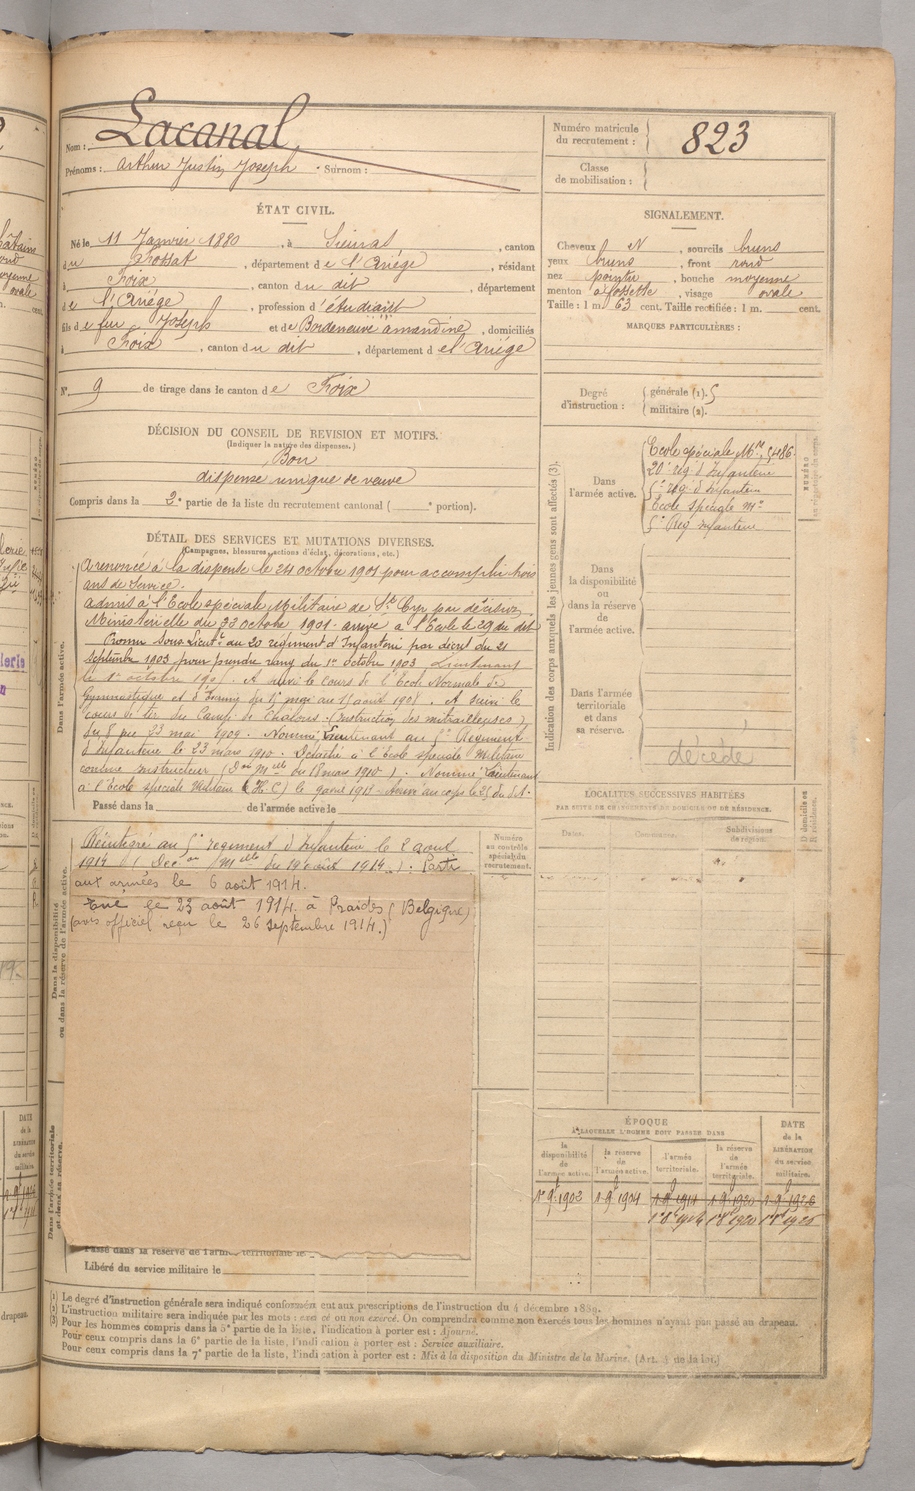 Nom : Lacanal
Prénoms : Arthur Justin Joseph Surnom :
Numéro matricule du recrutement : 823
Classe de mobilisation :
ÉTAT CIVIL.
Né le 11 Janvier 1880, à Sieuras, canton
du Fossat, département de l'Ariége, résidant
à Foix, canton du dit, département
de l'Ariége, profession d'étudiant
fils de feu Joseph et de Bordeneuve amandine, domiciliés
à Foix, canton du dit, département de l'Ariége
N° 9 de tirage dans le canton de Foix
SIGNALEMENT.
Cheveux N, sourcils bruns
yeux bruns, front rond
nez pointu, bouche moyenne
menton à fossette, visage ovale
Taille : 1 m. 63 cent. Taille rectifiée : 1 m. cent.
MARQUES PARTICULIÈRES :
Degré d'instruction : générale (1). 5
militaire (2).
DÉCISION DU CONSEIL DE REVISION ET MOTIFS.
(Indiquer la nature des dispenses.)
Bon
dispense unique de veuve
Compris dans la 2e partie de la liste du recrutement cantonal ( e portion).
DÉTAIL DES SERVICES ET MUTATIONS DIVERSES.
(Campagnes, blessures, actions d'éclat, décorations, etc.)
Dans l'armée active.
A renoncé à la dispense le 24 octobre 1901 pour accomplir trois
ans de service.
admis à l'Ecole spéciale Militaire de St Cyr par décision
Ministérielle du 22 octobre 1901 arrivé à l'Ecole le 29 du dit
Promu Sous Lieutt au 20 régiment d'Infanterie par décret du 21
Septembre 1903 pour prendre rang du 1er octobre 1903 Lieutenant
le 1er octobre 1905. A suivi le cours de l'Ecole Normale de
Gymnastique et d'Escrime du 15 mai au 15 août 1908. A suivi le
cours de tir du Camp de Châlons (instruction des mitrailleuses)
du 8 au 23 mai 1909. Nommé Lieutenant au 5e Régiment
d'Infanterie le 23 mars 1910. Détaché à l'école spéciale Militaire
comme instructeur (Don Melle du 18 mars 1910). Nommé Lieutenant
à l'école spéciale Militaire (H.C) le 9 avril 1913. Arrivé au corps le 25 du dit.
Passé dans la de l'armée active le
Dans la disponibilité ou dans la réserve de l'armée active.
Réintégré au 5e régiment d'Infanterie le 2 août
1914 (Decon Melle du 12 août 1914). Parti
aux armées le 6 août 1914.
Tué le 23 août 1914. à Graides (Belgique)
(avis officiel reçu le 26 septembre 1914.)
Numéro au contrôle spécial du recrutement.
Dans l'armée territoriale et dans sa réserve.
Passé dans la réserve de l'armée territoriale le
Libéré du service militaire le
Indication des corps auxquels les jeunes gens sont affectés (3).
Dans l'armée active.
Ecole spéciale Mre
20e rég d'Infanterie
5e rég. d'Infanterie
Ecole spéciale Mre
5e Reg Infanterie
Dans la disponibilité ou dans la réserve de l'armée active.
Dans l'armée territoriale et dans sa réserve.
décédé
LOCALITÉS SUCCESSIVES HABITÉES
PAR SUITE DE CHANGEMENTS DE DOMICILE OU DE RÉSIDENCE.
Dates. Communes. Subdivisions de région. D domicile ou R résidence.
ÉPOQUE
À LAQUELLE L'HOMME DOIT PASSER DANS
DATE de la LIBÉRATION du service militaire.
la disponibilité de l'armée active.
la réserve de l'armée active.
l'armée territoriale.
la réserve de l'armée territoriale.
1er 9bre 1902 1 9bre 1904 1 9bre 1914 1 9bre 1920 1 9bre 1926
1er 8bre 1914 1er 8bre 1920 1er 8bre 1926
(1) Le degré d'instruction générale sera indiqué conformément aux prescriptions de l'instruction du 4 décembre 1889.
(2) L'instruction militaire sera indiquée par les mots : exercé ou non exercé. On comprendra comme non exercés tous les hommes n'ayant pas passé au drapeau.
(3) Pour les hommes compris dans la 5e partie de la liste, l'indication à porter est : Ajourné.
Pour ceux compris dans la 6e partie de la liste, l'indication à porter est : Service auxiliaire.
Pour ceux compris dans la 7e partie de la liste, l'indication à porter est : Mis à la disposition du Ministre de la Marine. (Art. 4 de la loi.)